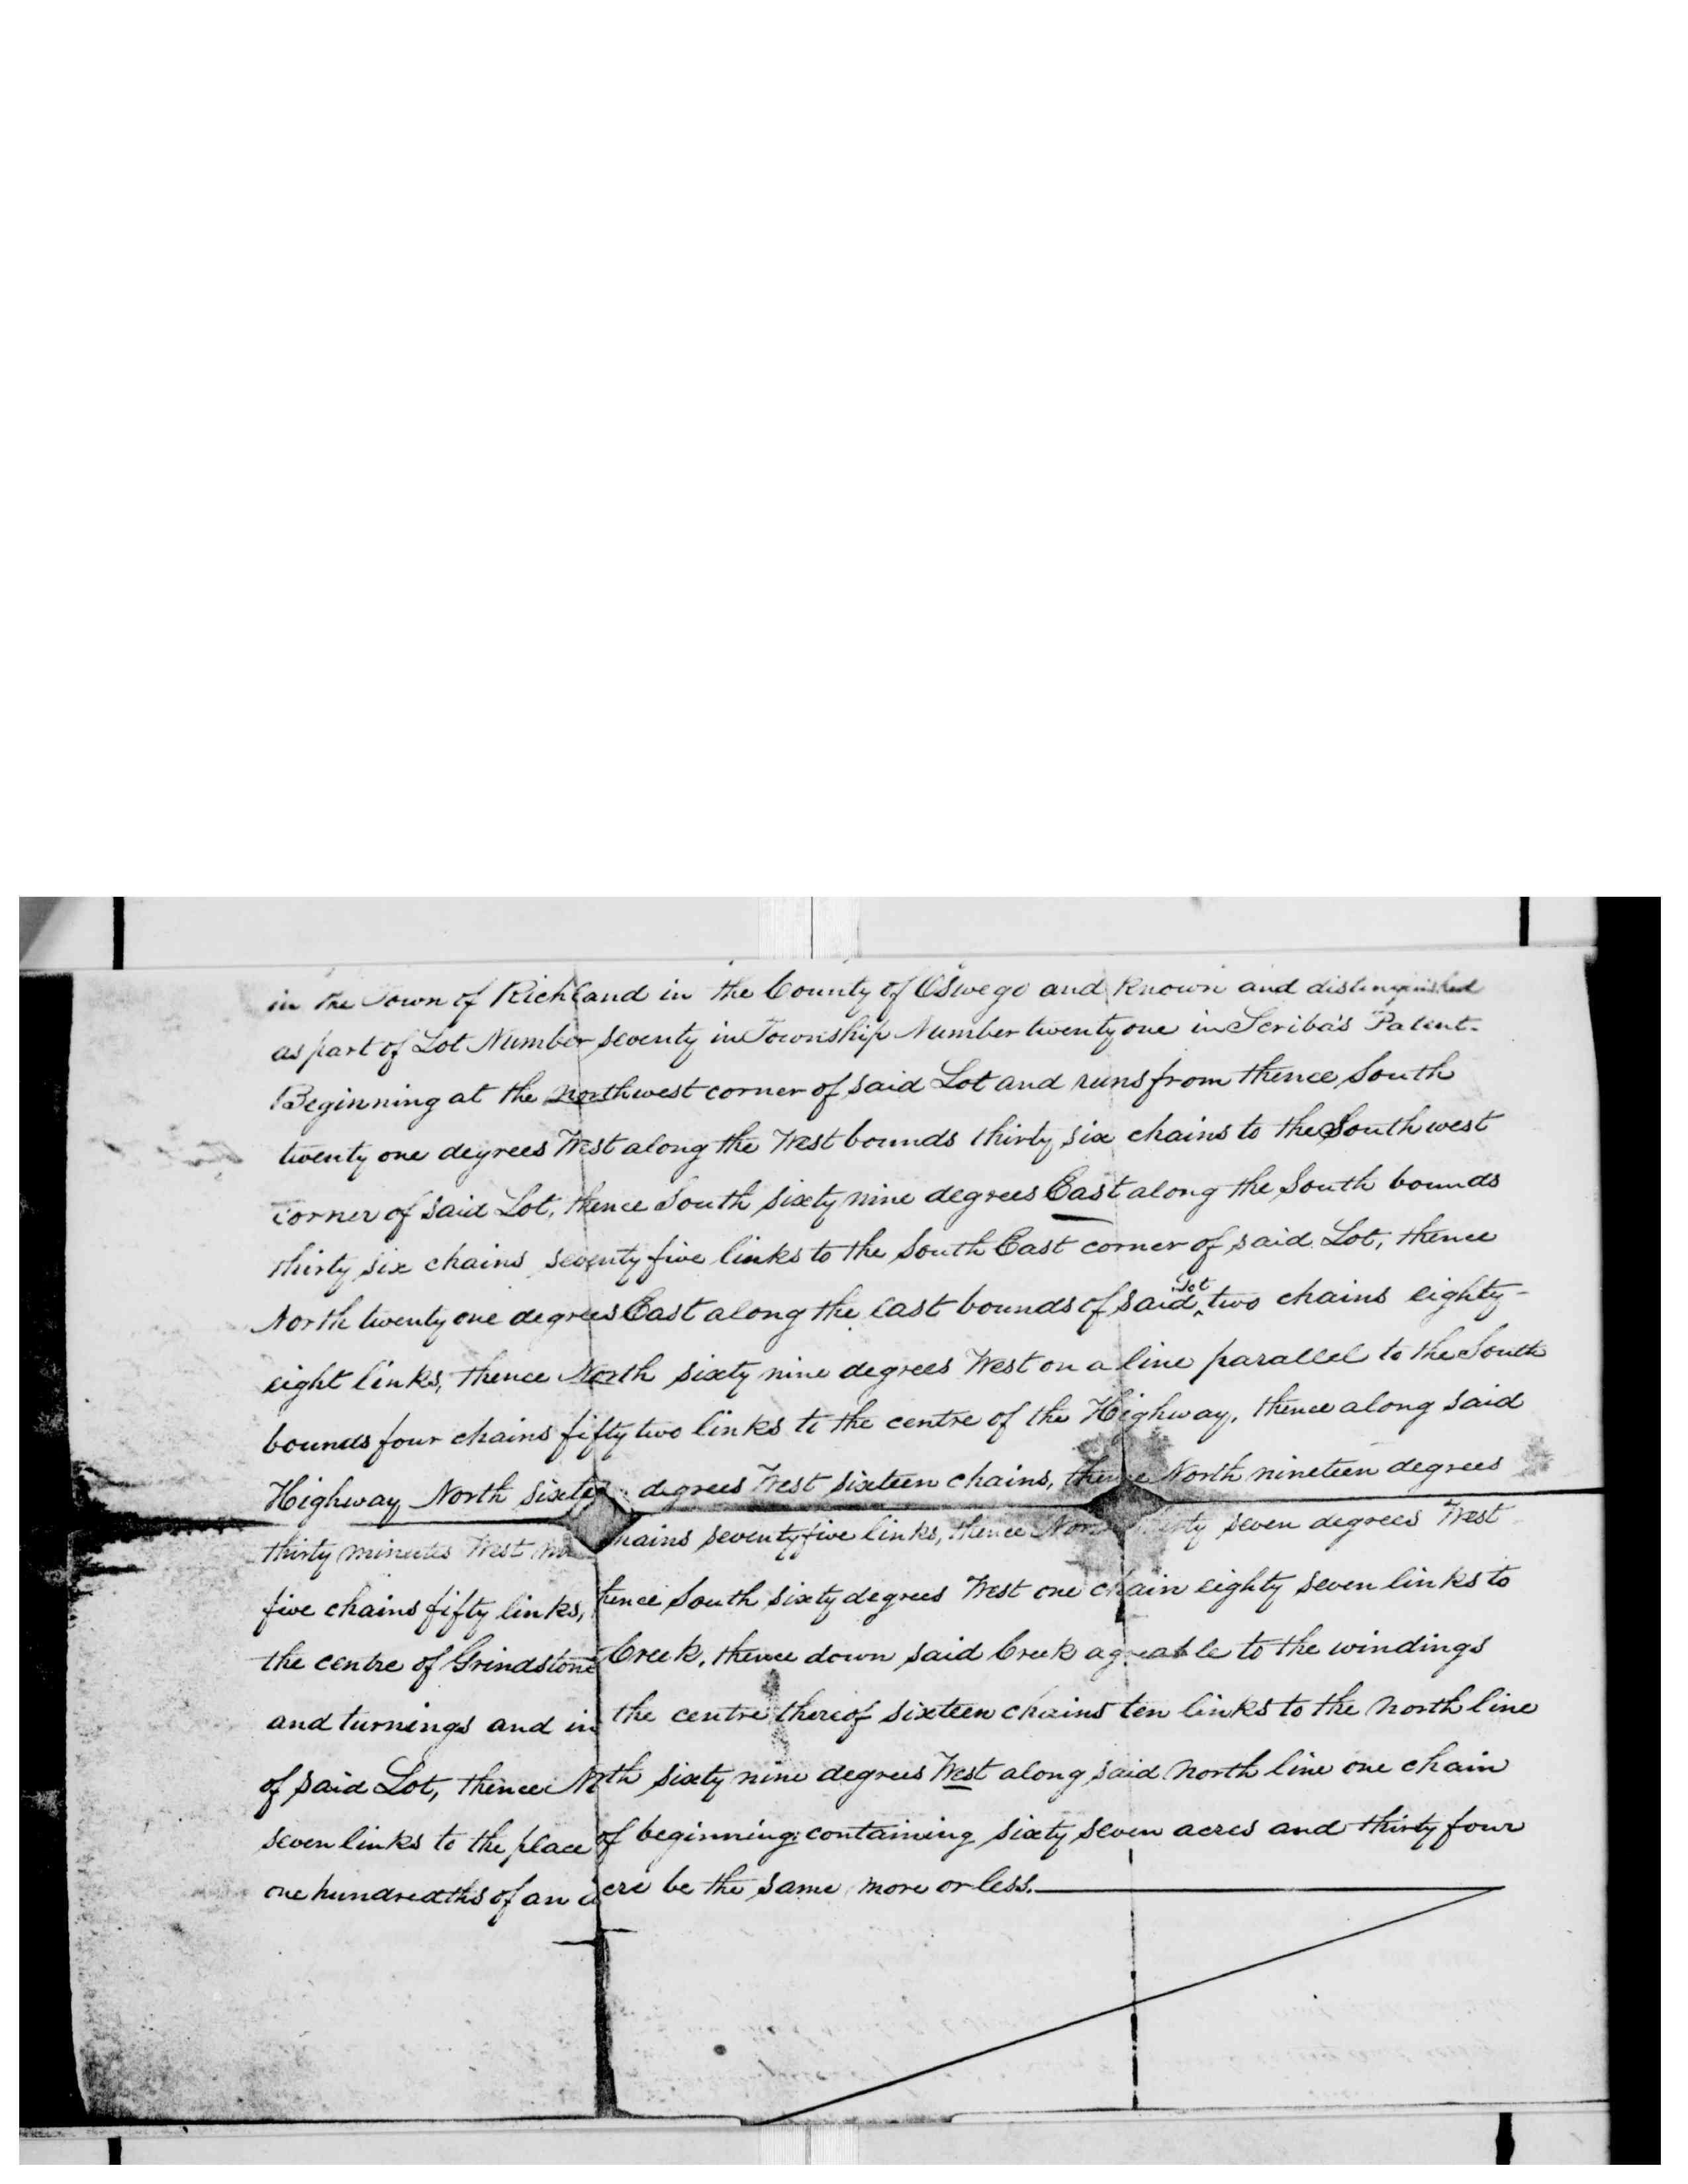 in the Town of Richland in the County of Oswego and known and distinguished
as part of Lot Number seventy in Township Number twenty one in Scriba's Patent.
Beginning at the northwest corner of said Lot and runs from thence South
twenty one degrees West along the West bounds thirty six chains to the Southwest
corner of said Lot, thence South sixty nine degrees East along the South bounds
thirty six chains seventy five links to the South East corner of said Lot, thence
North twenty one degrees East along the East bounds of said Lot two chains eighty-
eight links, thence North sixty nine degrees West on a line parallel to the South
bounds four chains fifty two links to the centre of the Highway, thence along said
Highway North degrees West sixteen chains, thence North nineteen degrees
thirty minutes West chains seventy five links, thence seven degrees West
five chains fifty links, thence South sixty degrees West one chain eighty seven links to
the centre of Grindstone Creek, thence down said Creek agreable to the windings
and turnings and in the centre thereof sixteen chains ten links to the North line
of said Lot, thence North sixty nine degrees West along said North line one chain
seven links to the place of beginning containing sixty seven acres and thirty four
one hundredths of an acre be the same more or less.